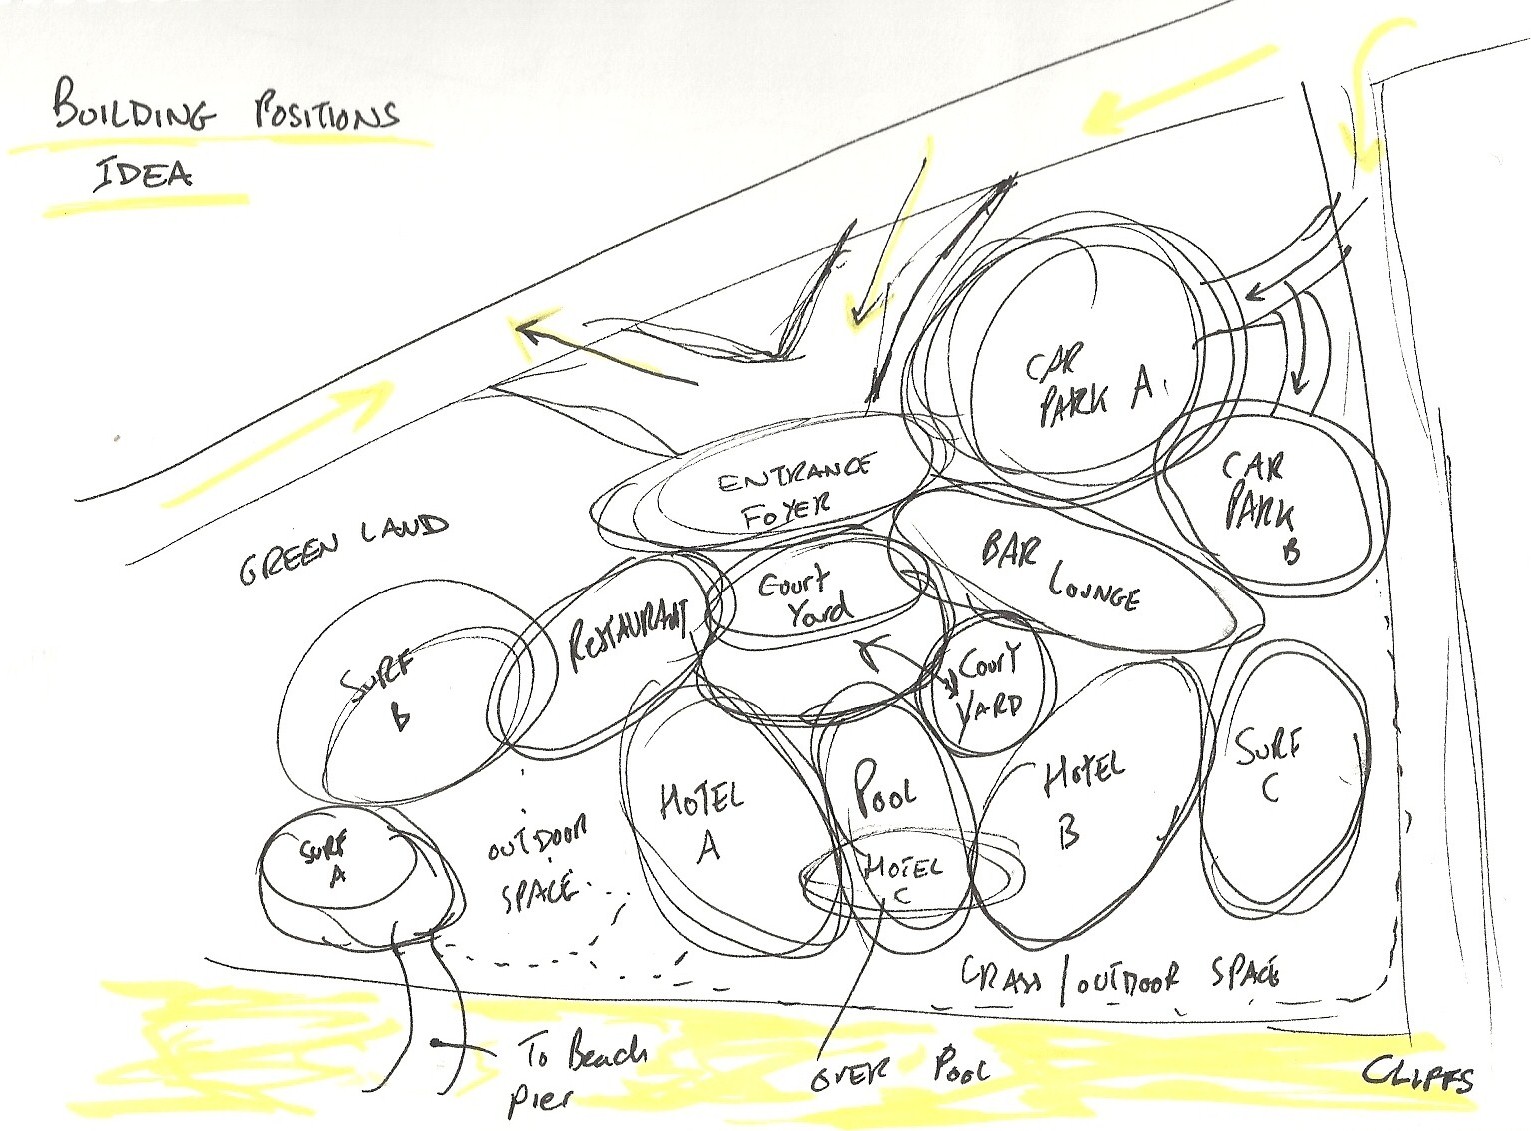 BUILDING POSITIONS
IDEA
CAR
PARK A.
CAR
PARK
B
ENTRANCE
FOYER
GREEN LAND
BAR
LOUNGE
COURT
YARD
RESTAURANT
SURF
B
COURT
YARD
HOTEL
A
POOL
HOTEL
B
SURF
C
SURF
A
OUTDOOR
SPACE
HOTEL
C
GRASS/OUTDOOR SPACE
To Beach
Pier
OVER POOL
CLIFFS